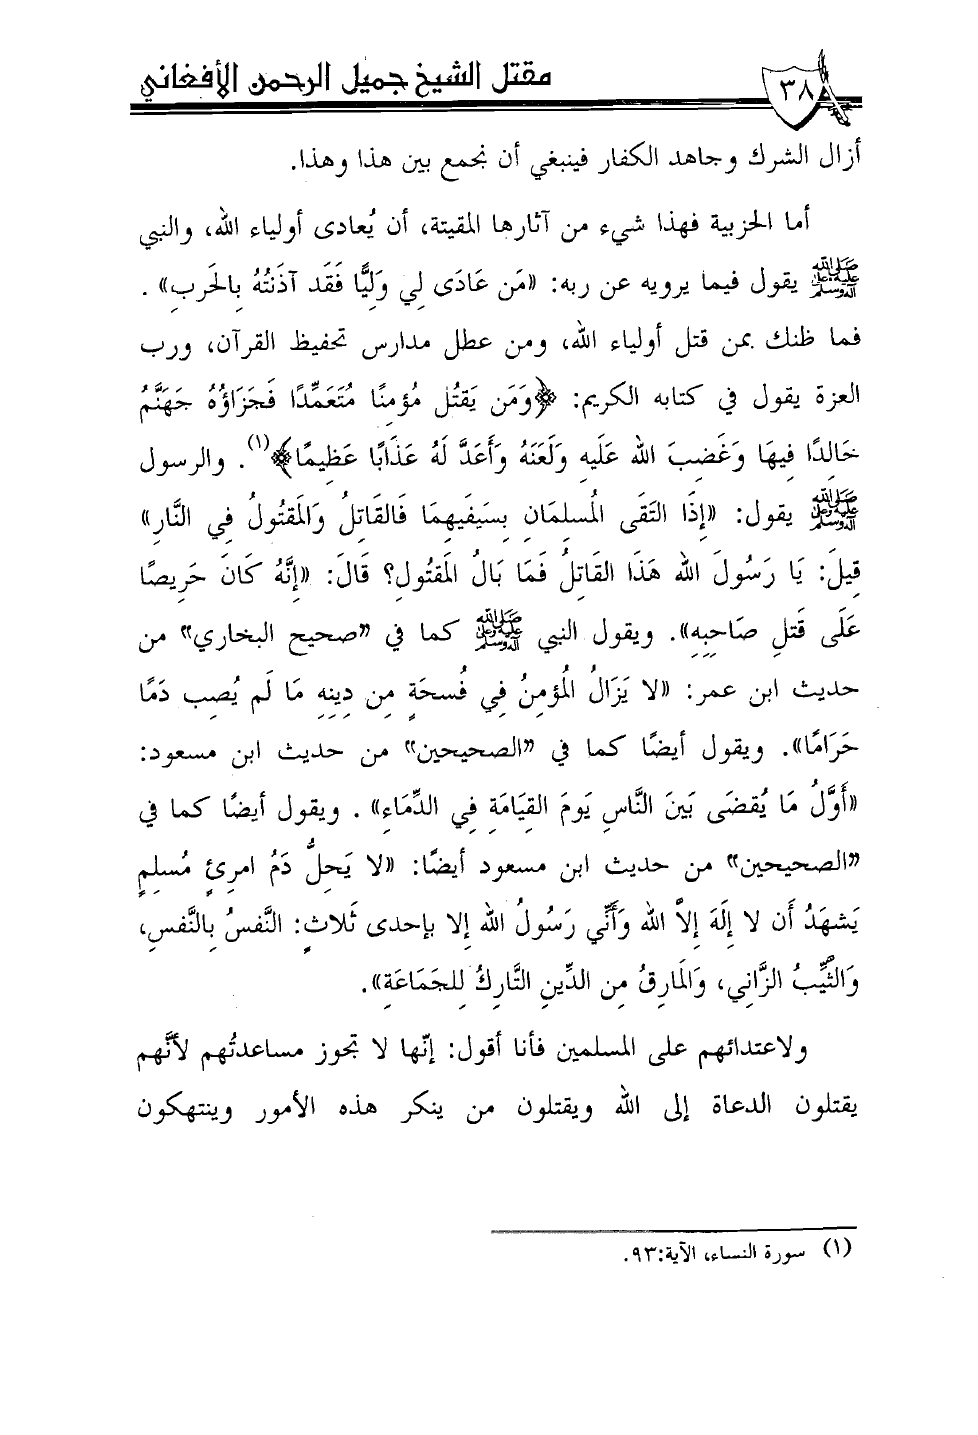 ٣٨
مقتل الشيخ جميل الرحمن الأفغاني
أزال الشرك وجاهد الكفار فينبغي أن نجمع بين هذا وهذا.
أما الحزبية فهذا شيء من آثارها المقيتة، أن يُعادى أولياء الله، والنبي
ﷺ يقول فيما يرويه عن ربه: «مَن عَادَى لِي وَلِيًّا فَقَد آذَنتُهُ بِالحَربِ» .
فما ظنك بمن قتل أولياء الله، ومن عطل مدارس تحفيظ القرآن، ورب
العزة يقول في كتابه الكريم: ﴿وَمَن يَقتُل مُؤمِنًا مُتَعَمِّدًا فَجَزَاؤُهُ جَهَنَّمُ
خَالِدًا فِيهَا وَغَضِبَ الله عَلَيهِ وَلَعَنَهُ وَأَعَدَّ لَهُ عَذَابًا عَظِيمًا﴾(١). والرسول
ﷺ يقول: «إِذَا التَقَى المُسلِمَانِ بِسَيفَيهِمَا فَالقَاتِلُ وَالمَقتُولُ فِي النَّارِ»
قِيلَ: يَا رَسُولَ الله هَذَا القَاتِلُ فَمَا بَالُ المَقتُولِ؟ قَالَ: «إِنَّهُ كَانَ حَرِيصًا
عَلَى قَتلِ صَاحِبِهِ». ويقول النبي ﷺ كما في "صحيح البخاري" من
حديث ابن عمر: «لا يَزَالُ المُؤمِنُ فِي فُسحَةٍ مِن دِينِهِ مَا لَم يُصِب دَمًا
حَرَامًا». ويقول أيضًا كما في "الصحيحين" من حديث ابن مسعود:
«أَوَّلُ مَا يُقضَى بَينَ النَّاسِ يَومَ القِيَامَةِ فِي الدِّمَاءِ» . ويقول أيضًا كما في
"الصحيحين" من حديث ابن مسعود أيضًا: «لا يَحِلُّ دَمُ امرِئٍ مُسلِمٍ
يَشهَدُ أَن لا إِلَهَ إِلاَّ الله وَأَنِّي رَسُولُ الله إلا بِإحدى ثَلاثٍ: النَّفسُ بِالنَّفسِ،
وَالثَّيِّبُ الزَّانِي، وَالمَارِقُ مِن الدِّينِ التَّارِكُ لِلجَمَاعَةِ».
ولاعتدائهم على المسلمين فأنا أقول: إنّها لا تجوز مساعدتُهم لأنَّهم
يقتلون الدعاة إلى الله ويقتلون من ينكر هذه الأمور وينتهكون
(١) سورة النساء، الآية:٩٣.